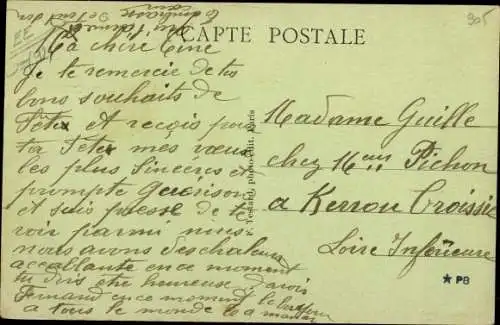 CARTE POSTALE
Ma chère Tine
Je te remercie de tes
bons souhaits de
fête Et reçois pour
ta fête mes vœux
les plus sincères et
prompte guérison
et suis pressé de te
voir parmi nous
nous avons des chaleurs
accablante en ce moment
tu dois être heureuse d'avoir
Fernand en ce moment le bonjour
a tous le monde
F. Testard, photo-édit. Paris
Madame Guille
chez Mme Pichon
a Kerrou Croisic
Loire Inférieure
★ PB
905